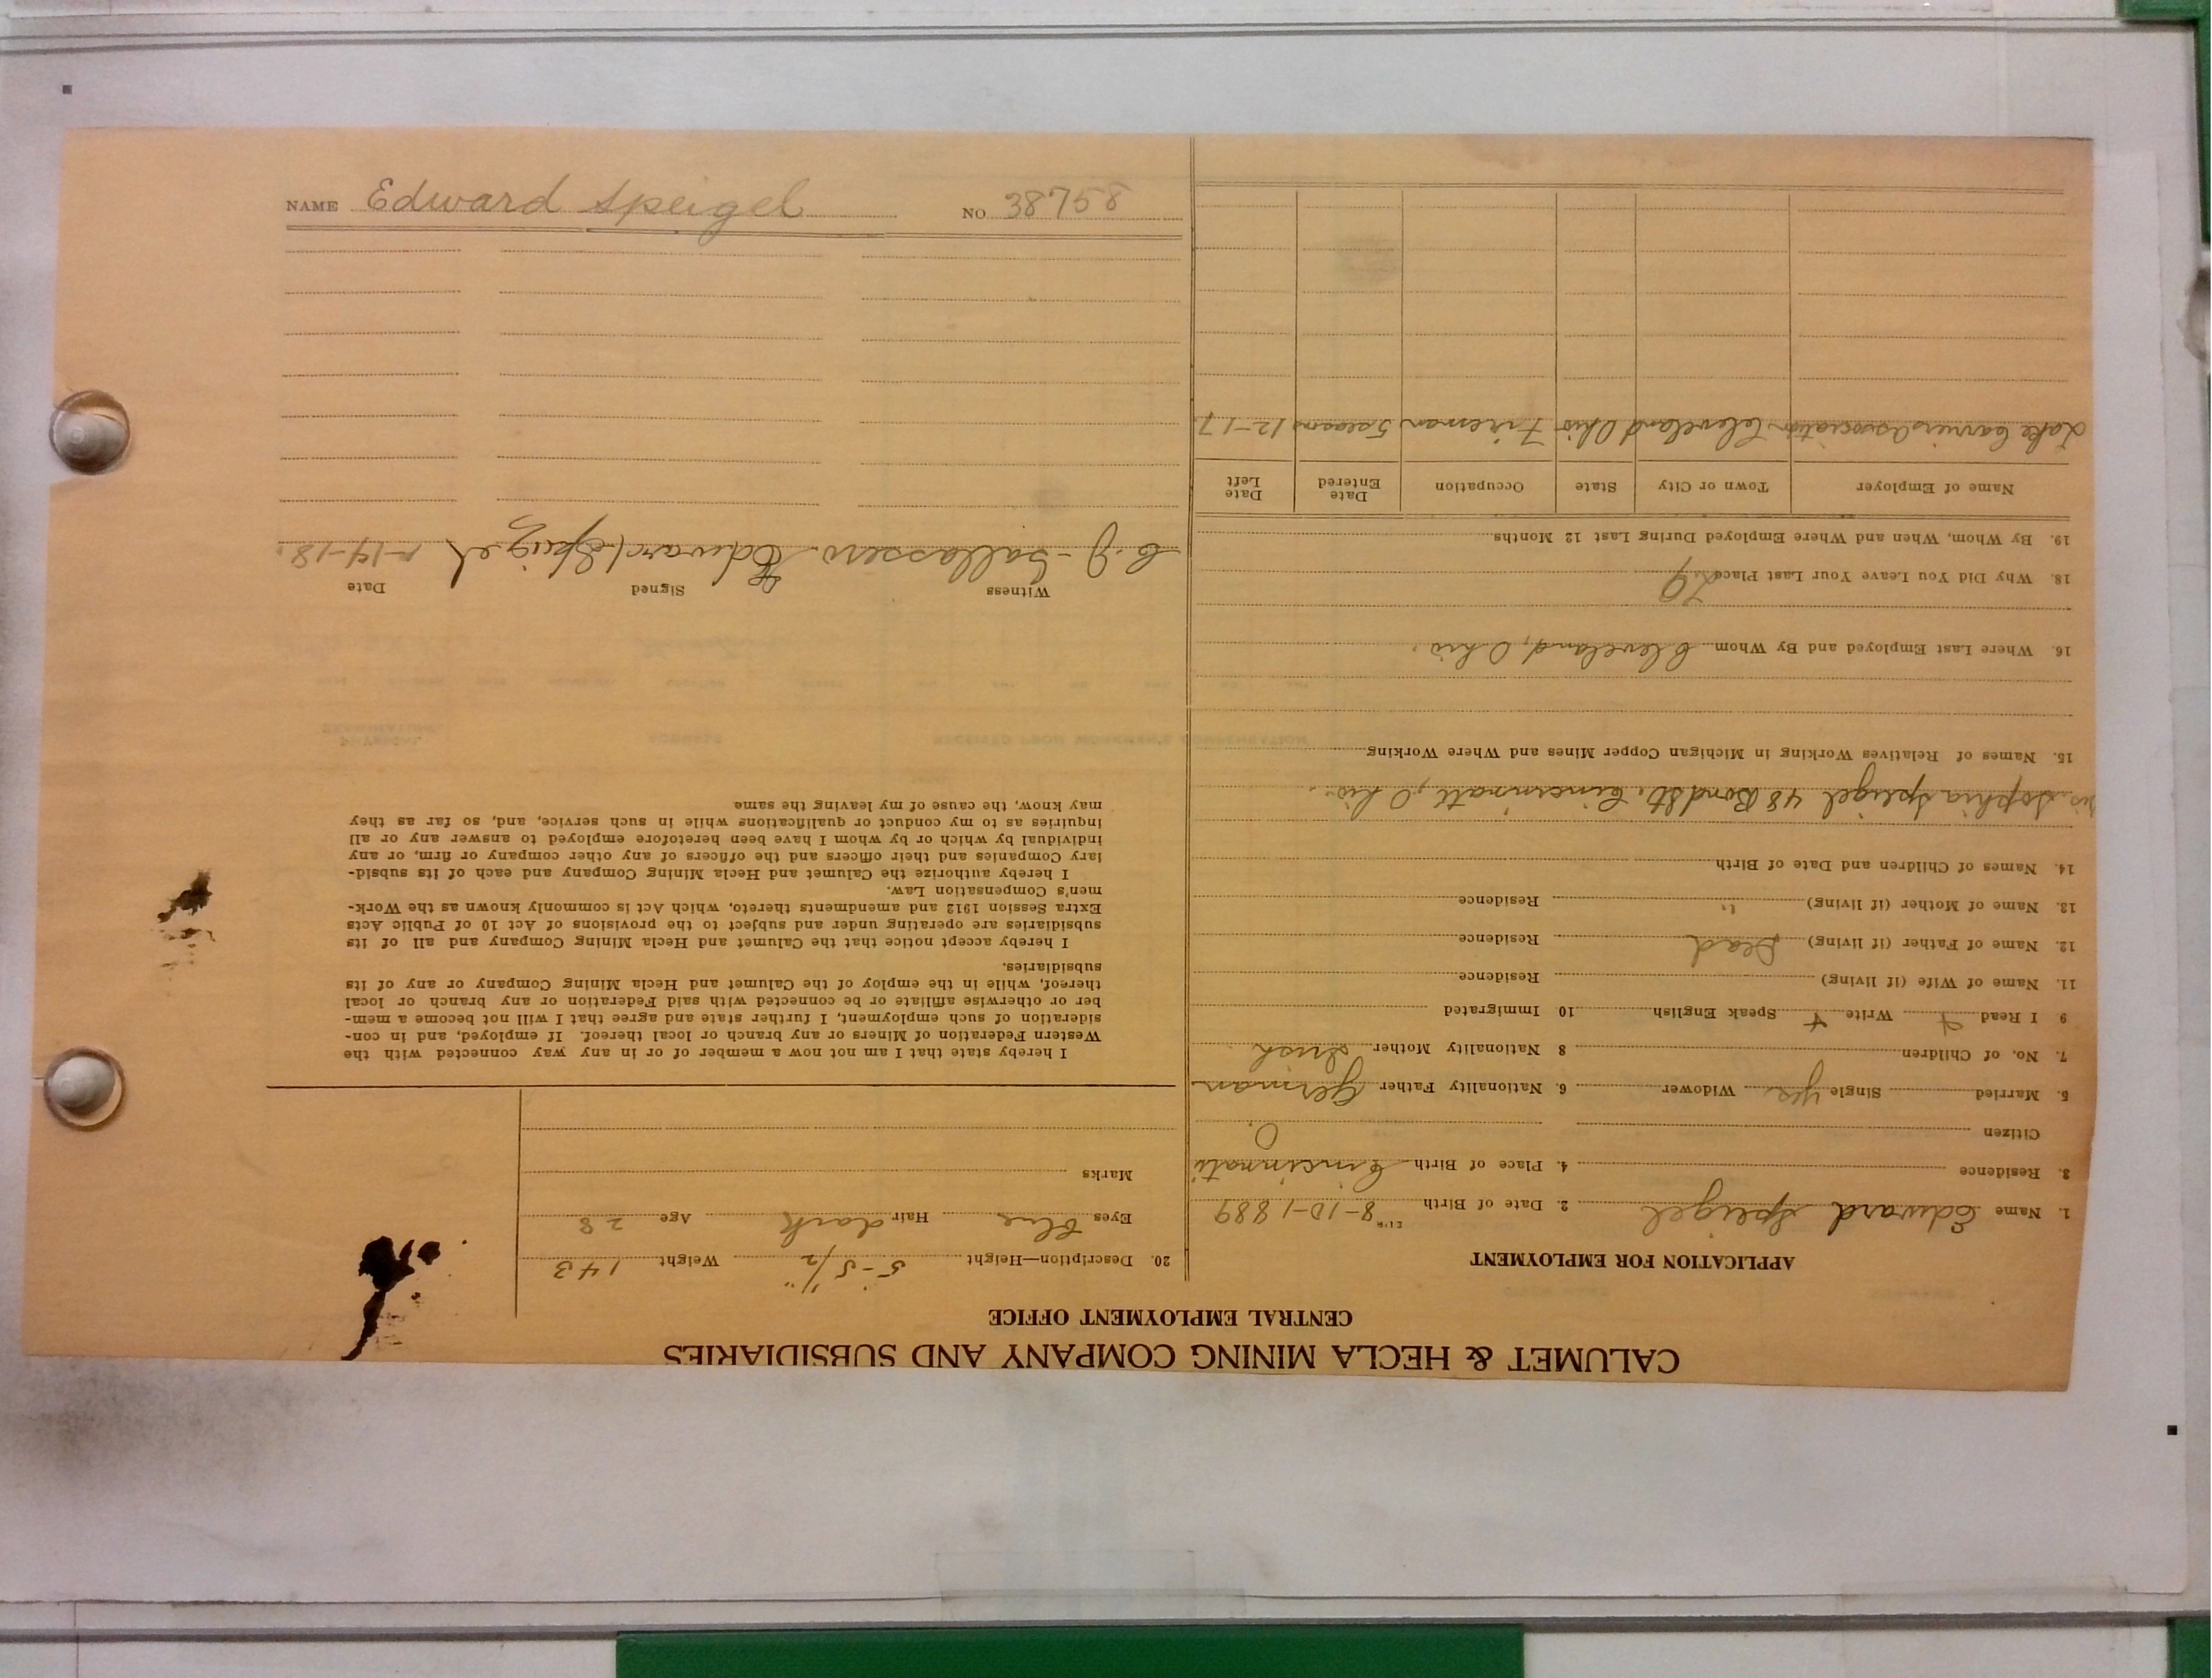 NAME Edward Speigel NO 38758
CALUMET & HECLA MINING COMPANY AND SUBSIDIARIES
CENTRAL EMPLOYMENT OFFICE
APPLICATION FOR EMPLOYMENT
1. Name Edward Speigel 2. Date of Birth 8-10-1889
3. Residence 4. Place of Birth Cincinnati
Citizen O.
5. Married Single yes Widower 6. Nationality Father German
7. No. of Children 8 Nationality Mother Irish
9 I Read Write Speak English 10 Immigrated
11. Name of Wife (if living) Residence
12. Name of Father (if living) Dead Residence
13. Name of Mother (if living) " Residence
14. Names of Children and Date of Birth
Sophia Speigel 48 Bond St. Cincinnati, Ohio.
15. Names of Relatives Working in Michigan Copper Mines and Where Working
16. Where Last Employed and By Whom Cleveland, Ohio.
18. Why Did You Leave Your Last Place
19. By Whom, When and Where Employed During Last 12 Months
Name of Employer Town or City State Occupation Date Entered Date Left
Lake Carriers Association Cleveland Ohio Fireman 5 seasons 12-17
20. Description—Height 5-5 1/2" Weight 143
Eyes blue Hair dark Age 28
Marks
I hereby state that I am not now a member of or in any way connected with the
Western Federation of Miners or any branch or local thereof. If employed, and in con-
sideration of such employment, I further state and agree that I will not become a mem-
ber or otherwise affiliate or be connected with said Federation or any branch or local
thereof, while in the employ of the Calumet and Hecla Mining Company or any of its
subsidiaries.
I hereby accept notice that the Calumet and Hecla Mining Company and all of its
subsidiaries are operating under and subject to the provisions of Act 10 of Public Acts
Extra Session 1912 and amendments thereto, which Act is commonly known as the Work-
men's Compensation Law.
I hereby authorize the Calumet and Hecla Mining Company and each of its subsid-
iary Companies and their officers and the officers of any other company or firm, or any
individual by which or by whom I have been heretofore employed to answer any or all
inquiries as to my conduct or qualifications while in such service, and, so far as they
may know, the cause of my leaving the same
Witness Signed Date
Edward Speigel 1-14-18.